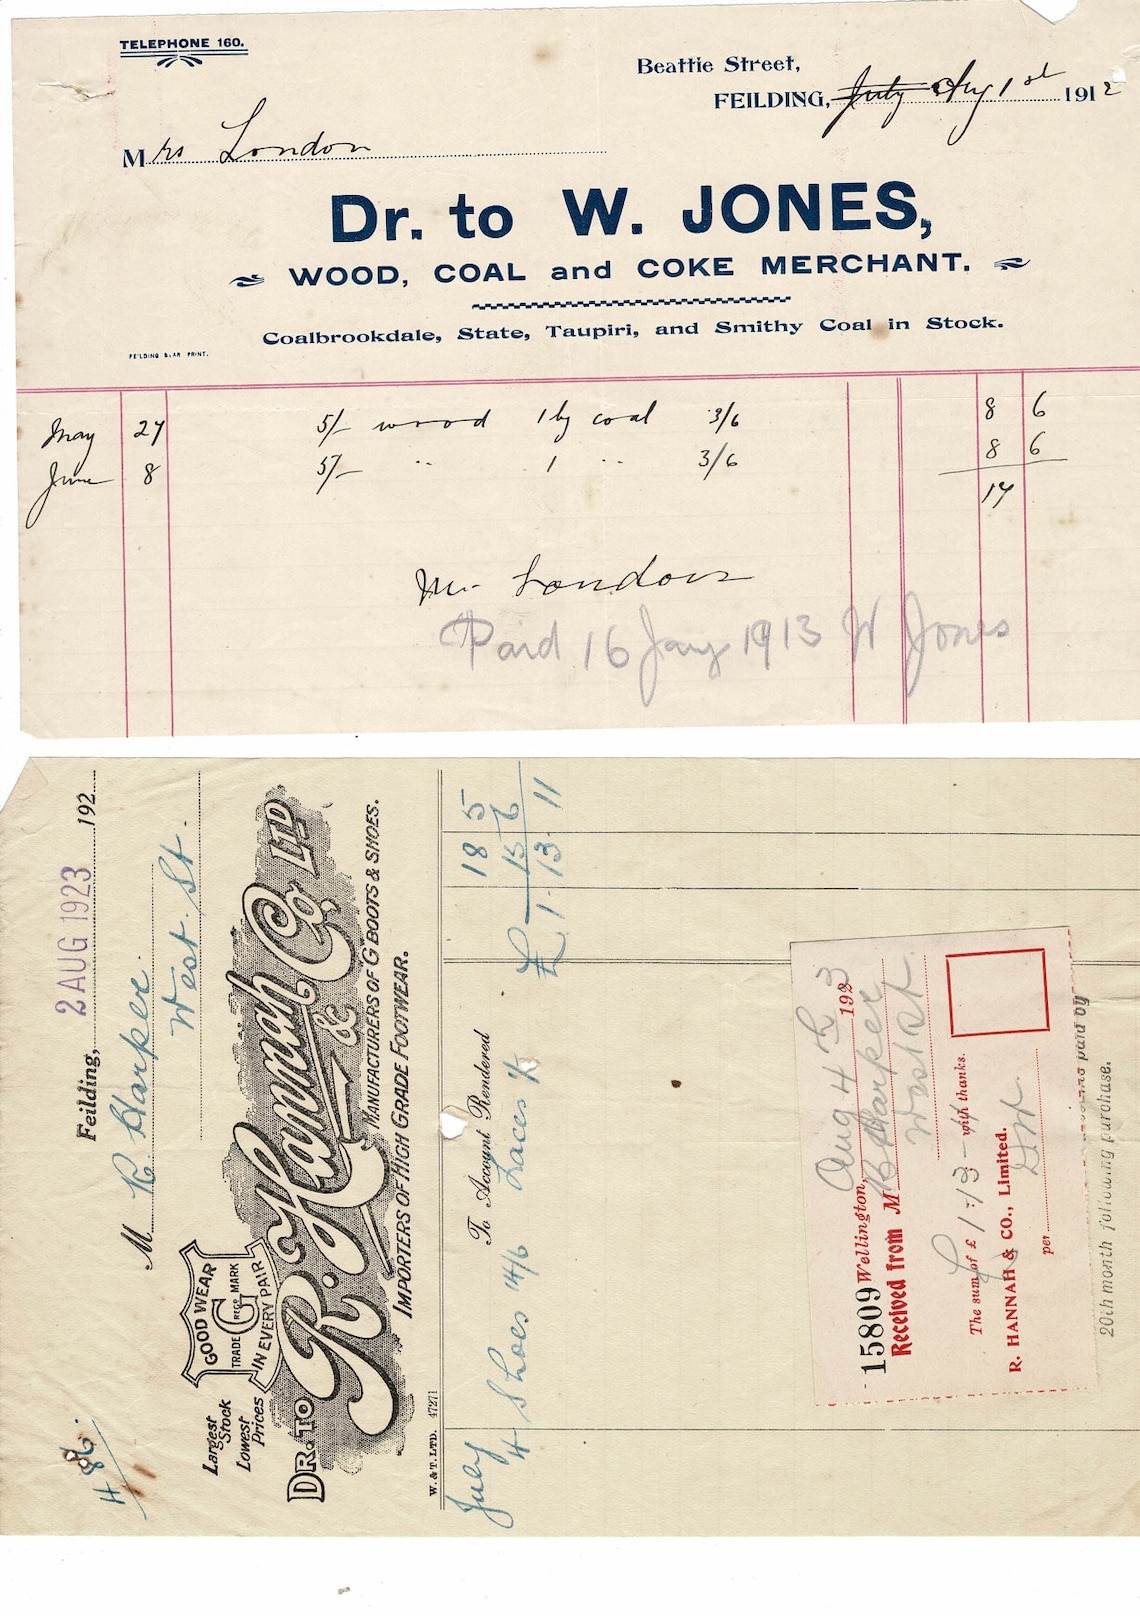 TELEPHONE 160.
Beattie Street,
FEILDING, July Aug 1st 1912
Mrs London
Dr. to W. JONES,
WOOD, COAL and COKE MERCHANT.
Coalbrookdale, State, Taupiri, and Smithy Coal in Stock.
FEILDING STAR PRINT.
May 27 5/- wood 1 by coal 3/6 8 6
June 8 5/- " 1 " 3/6 8 6
17
Mr London
Paid 16 Jany 1913 W Jones
486
Feilding, 2 AUG 1923 192
M R Harper.
West St.
LARGEST STOCK LOWEST PRICES
GOOD WEAR
TRADE G REGD MARK
IN EVERY PAIR
DR. TO R. Hannah & Co. LTD
MANUFACTURERS OF G BOOTS & SHOES.
IMPORTERS OF HIGH GRADE FOOTWEAR.
W. & T. LTD. 47271
July To Account Rendered 18 5
4 Shoes 14/6 Laces 1/- 15 6
£ 1-13-11
15809 Wellington, Aug 4th 1923
Received from M R Harper
West St.
The sum of £ 1-13- with thanks.
R. HANNAH & CO., Limited.
per
paid by
20th month following purchase.